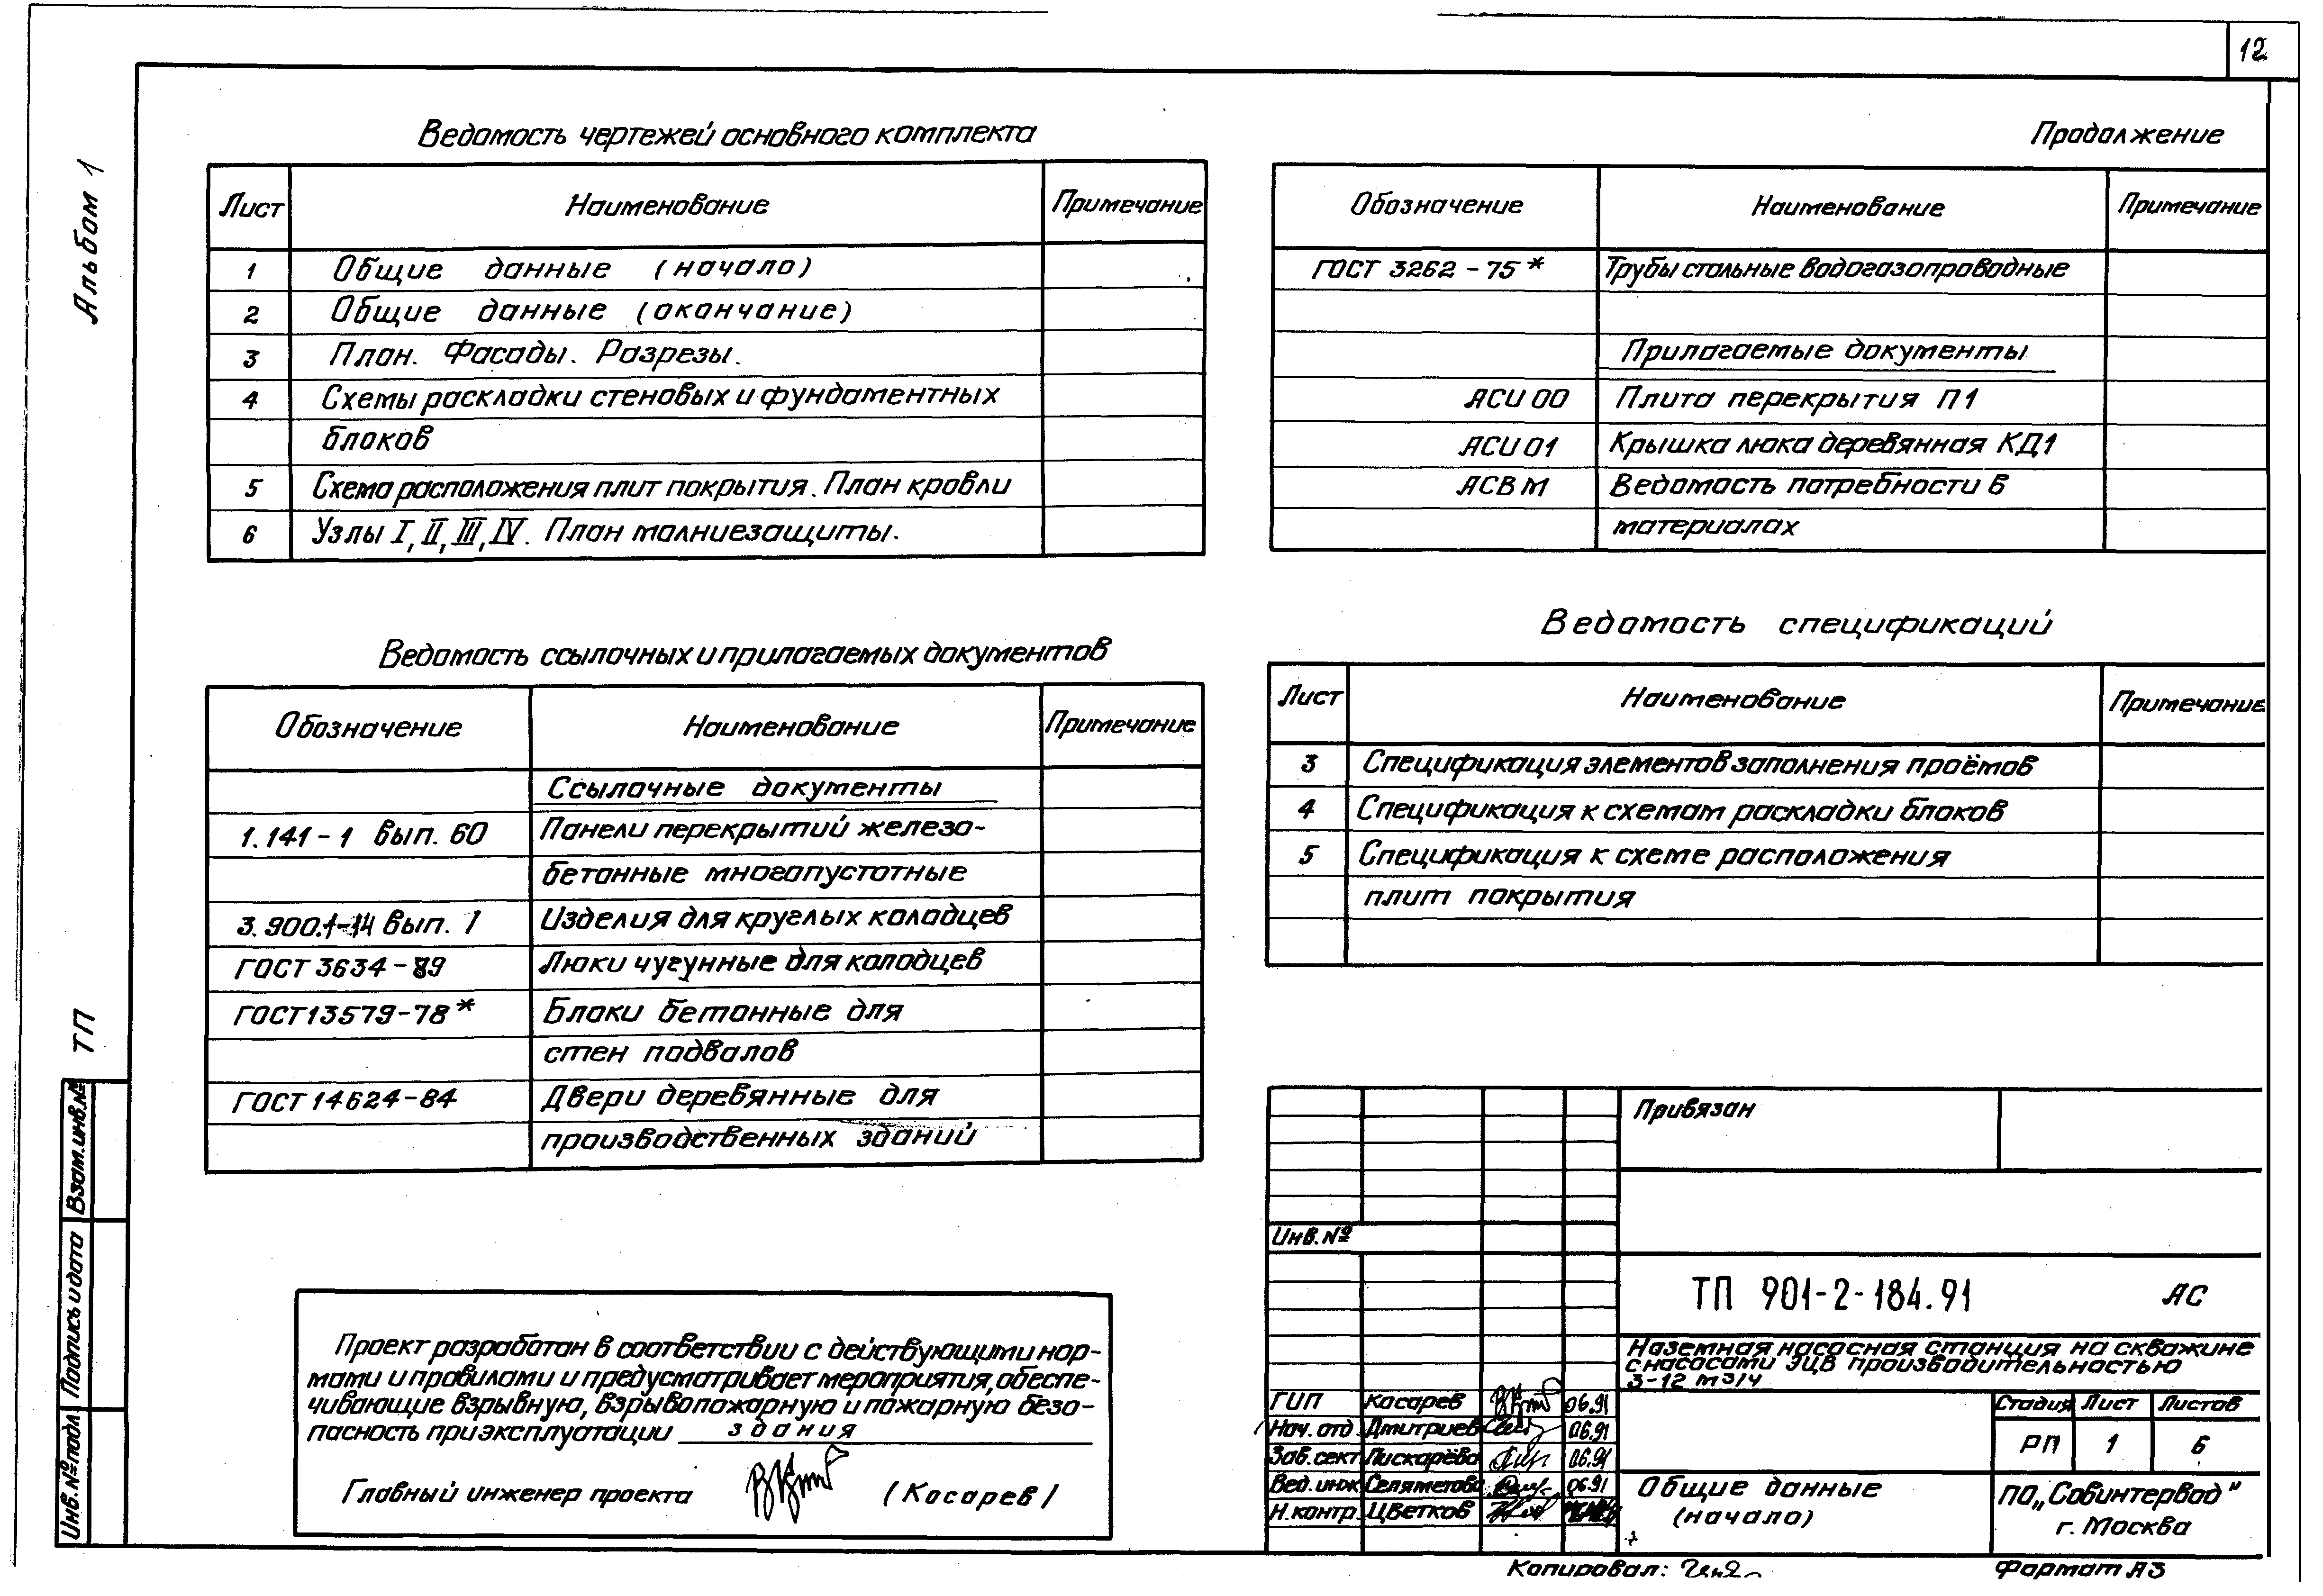 12
Альбом 1
ТП
Взам.инв.№
Подпись и дата
Инв.№ подл.
Ведомость чертежей основного комплекта
Лист Наименование Примечание
1 Общие данные (начало)
2 Общие данные (окончание)
3 План. Фасады. Разрезы.
4 Схемы раскладки стеновых и фундаментных
блоков
5 Схема расположения плит покрытия. План кровли
6 Узлы I, II, III, IV. План молниезащиты.
Ведомость ссылочных и прилагаемых документов
Обозначение Наименование Примечание
Ссылочные документы
1.141-1 вып. 60 Панели перекрытий железо-
бетонные многопустотные
3.900.1-14 вып. 1 Изделия для круглых колодцев
ГОСТ 3634-89 Люки чугунные для колодцев
ГОСТ 13579-78* Блоки бетонные для
стен подвалов
ГОСТ 14624-84 Двери деревянные для
производственных зданий
Проект разработан в соответствии с действующими нор-
мами и правилами и предусматривает мероприятия, обеспе-
чивающие взрывную, взрывопожарную и пожарную безо-
пасность при эксплуатации здания
Главный инженер проекта (Косарев)
Продолжение
Обозначение Наименование Примечание
ГОСТ 3262-75* Трубы стальные водогазопроводные
Прилагаемые документы
АСИ 00 Плита перекрытия П1
АСИ 01 Крышка люка деревянная КД1
АСВМ Ведомость потребности в
материалах
Ведомость спецификаций
Лист Наименование Примечание
3 Спецификация элементов заполнения проёмов
4 Спецификация к схемам раскладки блоков
5 Спецификация к схеме расположения
плит покрытия
Привязан
Инв.№
ТП 901-2-184.91 АС
Наземная насосная станция на скважине
с насосами ЭЦВ производительностью
3-12 м3/ч
ГИП Косарев 06.91
Нач. отд. Дмитриев 06.91
Зав. сект. Пискарёва 06.91
Вед. инж. Селяметова 06.91
Н. контр. Цветков
Стадия Лист Листов
РП 1 6
Общие данные
(начало)
ПО „Совинтервод"
г. Москва
Копировал:
Формат А3